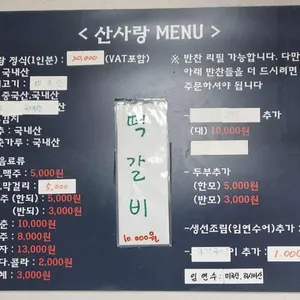 < 산사랑 MENU >
정식(1인분) : 20,000 (VAT포함)
국내산
중국산.국내산
국내산
춧가루 : 국내산
음료류
맥주 : 5,000원
막걸리 : 5,000
주 (한되) : 5,000원
(반되) : 3,000원
춘 : 10,000원
주 : 8,000원
자 : 13,000원
다.콜라 : 2,000원
에 : 3,000원
떡갈비
10.000원
※ 반찬 리필 가능합니다. 다만
아래 반찬들을 더 드시려면
주문하셔야 됩니다.
추가
(대) 10,000원
-두부추가
(한모) 5,000원
(반모) 3,000원
-생선조림(임연수어)추가
추가 : 1.000
임연수 : 미국산, 러시아산